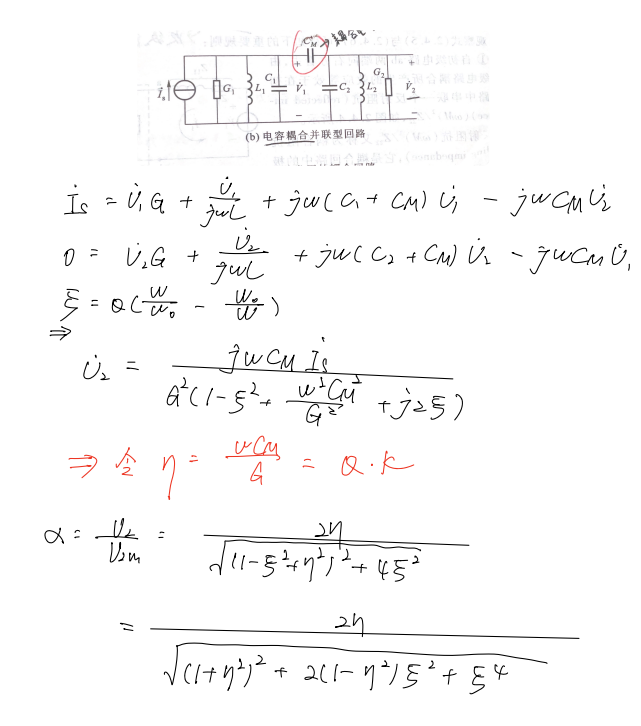 C_M
+ + +
İ_s G₁ L₁ C₁ V̇₁ C₂ L₂ G₂ V̇₂
− −
(b) 电容耦合并联型回路
İs = U̇₁G + U̇₁/jwL + jw(C₁ + CM) U̇₁ − jwCM U̇₂
0 = U̇₂G + U̇₂/jwL + jw(C₂ + CM) U̇₂ − jwCM U̇₁
ξ = Q(w/w₀ − w₀/w)
⇒
U̇₂ = jwCM İs / G²(1 − ξ² + w²CM²/G² + j2ξ)
⇒ 令 η = wCM/G = Q·k
α = U₂/U₂m = 2η / √((1−ξ²+η²)² + 4ξ²)
= 2η / √((1+η²)² + 2(1−η²)ξ² + ξ⁴)